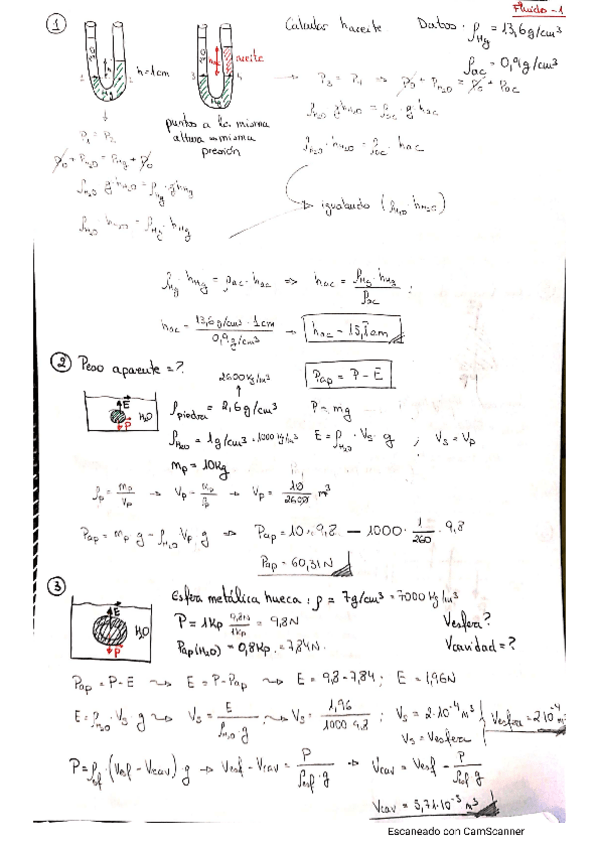 Fluido-1
① Calcular haceite Datos: ρHg = 13,6 g/cm³
ρac = 0,9 g/cm³
h = 1cm
aceite
→ P3 = P4 ⇒ P0 + PH2O = P0 + Pac
ρH2O · g · hH2O = ρac · g · hac
ρH2O · hH2O = ρac · hac
puntos a la misma
altura = misma
presión
P1 = P2
P0 + PH2O = PHg + P0
ρH2O · g · hH2O = ρHg · g · hHg
ρH2O · hH2O = ρHg · hHg
igualando (ρH2O · hH2O)
ρHg · hHg = ρac · hac ⇒ hac = ρHg · hHg / ρac ;
hac = 13,6 g/cm³ · 1cm / 0,9 g/cm³ → hac = 15,1 cm
② Peso aparente = ?
2600 kg/m³
Pap = P - E
E
H2O
P
ρpiedra = 2,6 g/cm³ P = mg
ρH2O = 1 g/cm³ = 1000 kg/m³ E = ρH2O · Vs · g ; Vs = Vp
mp = 10 kg
ρp = mp / Vp → Vp = mp / ρp → Vp = 10 / 2600 m³
Pap = mp · g - ρH2O · Vp · g ⇒ Pap = 10 · 9,8 — 1000 · 1 / 260 · 9,8
Pap = 60,31 N
③ Esfera metálica hueca: ρ = 7 g/cm³ = 7000 kg/m³
E
H2O
P
P = 1 Kp · 9,8N / 1Kp = 9,8 N Vesfera?
Pap(H2O) = 0,8 Kp = 7,84 N. Vcavidad = ?
Pap = P - E ⇝ E = P - Pap ⇝ E = 9,8 - 7,84 ; E = 1,96 N
E = ρH2O · Vs · g ⇝ Vs = E / ρH2O · g ⇝ Vs = 1,96 / 1000 · 9,8 ; Vs = 2·10⁻⁴ m³ Vesfera = 2·10⁻⁴
Vs = Vesfera
P = ρesf · (Vesf - Vcav) g → Vesf - Vcav = P / ρesf · g ⇒ Vcav = Vesf - P / ρesf g
Vcav = 5,71·10⁻⁵ m³
Escaneado con CamScanner